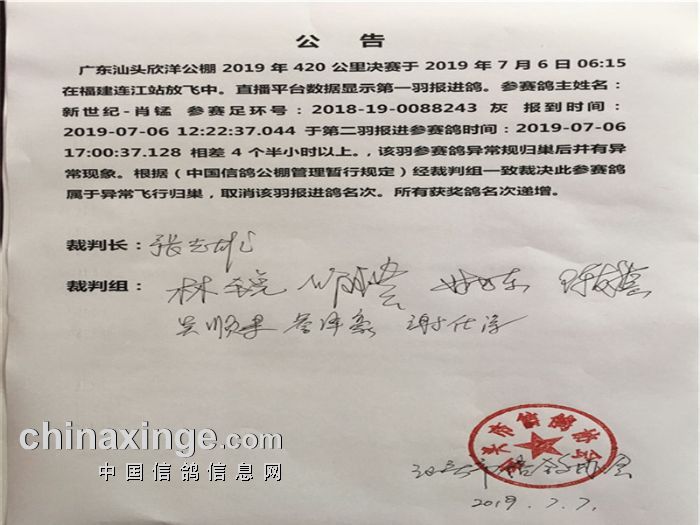 公 告
广东汕头欣洋公棚 2019 年 420 公里决赛于 2019 年 7 月 6 日 06:15
在福建连江站放飞中。直播平台数据显示第一羽报进鸽。参赛鸽主姓名：
新世纪-肖锰 参赛足环号：2018-19-0088243 灰 报到时间：
2019-07-06 12:22:37.044 于第二羽报进参赛鸽时间：2019-07-06
17:00:37.128 相差 4 个半小时以上。, 该羽参赛鸽异常规归巢后并有异
常现象。根据（中国信鸽公棚管理暂行规定）经裁判组一致裁决此参赛鸽
属于异常飞行归巢，取消该羽报进鸽名次。所有获奖鸽名次递增。
裁判长：
裁判组：
chinaxinge.com
中国信鸽信息网
市信鸽协会
2019.7.7.